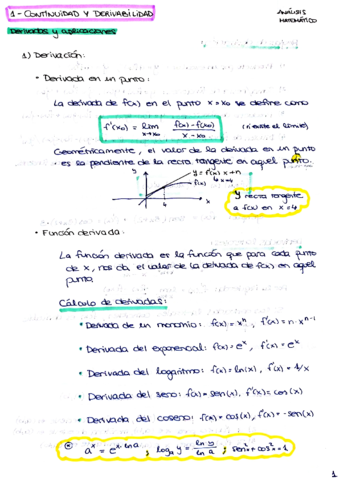 1 - CONTINUIDAD Y DERIVABILIDAD
ANÁLISIS
MATEMÁTICO
Derivadas y aplicaciones
1) Derivación:
• Derivada en un punto:
La derivada de f(x) en el punto x=x₀ se define como
f'(x₀) = lim x→x₀ f(x)-f(x₀) / x-x₀ (si existe el límite)
Geométricamente, el valor de la derivada en un punto
es la pendiente de la recta tangente en aquel punto.
y
f(x)
4
x
y recta tangente
a f(x) en x=4
• Función derivada:
La función derivada es la función que para cada punto
de x, nos da el valor de la derivada de f(x) en aquel
punto.
Cálculo de derivadas:
• Derivada de un monomio: f(x)=xⁿ, f'(x)=n·xⁿ⁻¹
• Derivada del exponencial: f(x)=eˣ, f'(x)=eˣ
• Derivada del logaritmo: f(x)=ln(x), f'(x)=1/x
• Derivada del seno: f(x)=sen(x), f'(x)=cos(x)
• Derivada del coseno: f(x)=cos(x), f'(x)=-sen(x)
aˣ = eˣ·ˡⁿᵃ ; logₐ y = ln y / ln a ; sen²+cos²=1
1